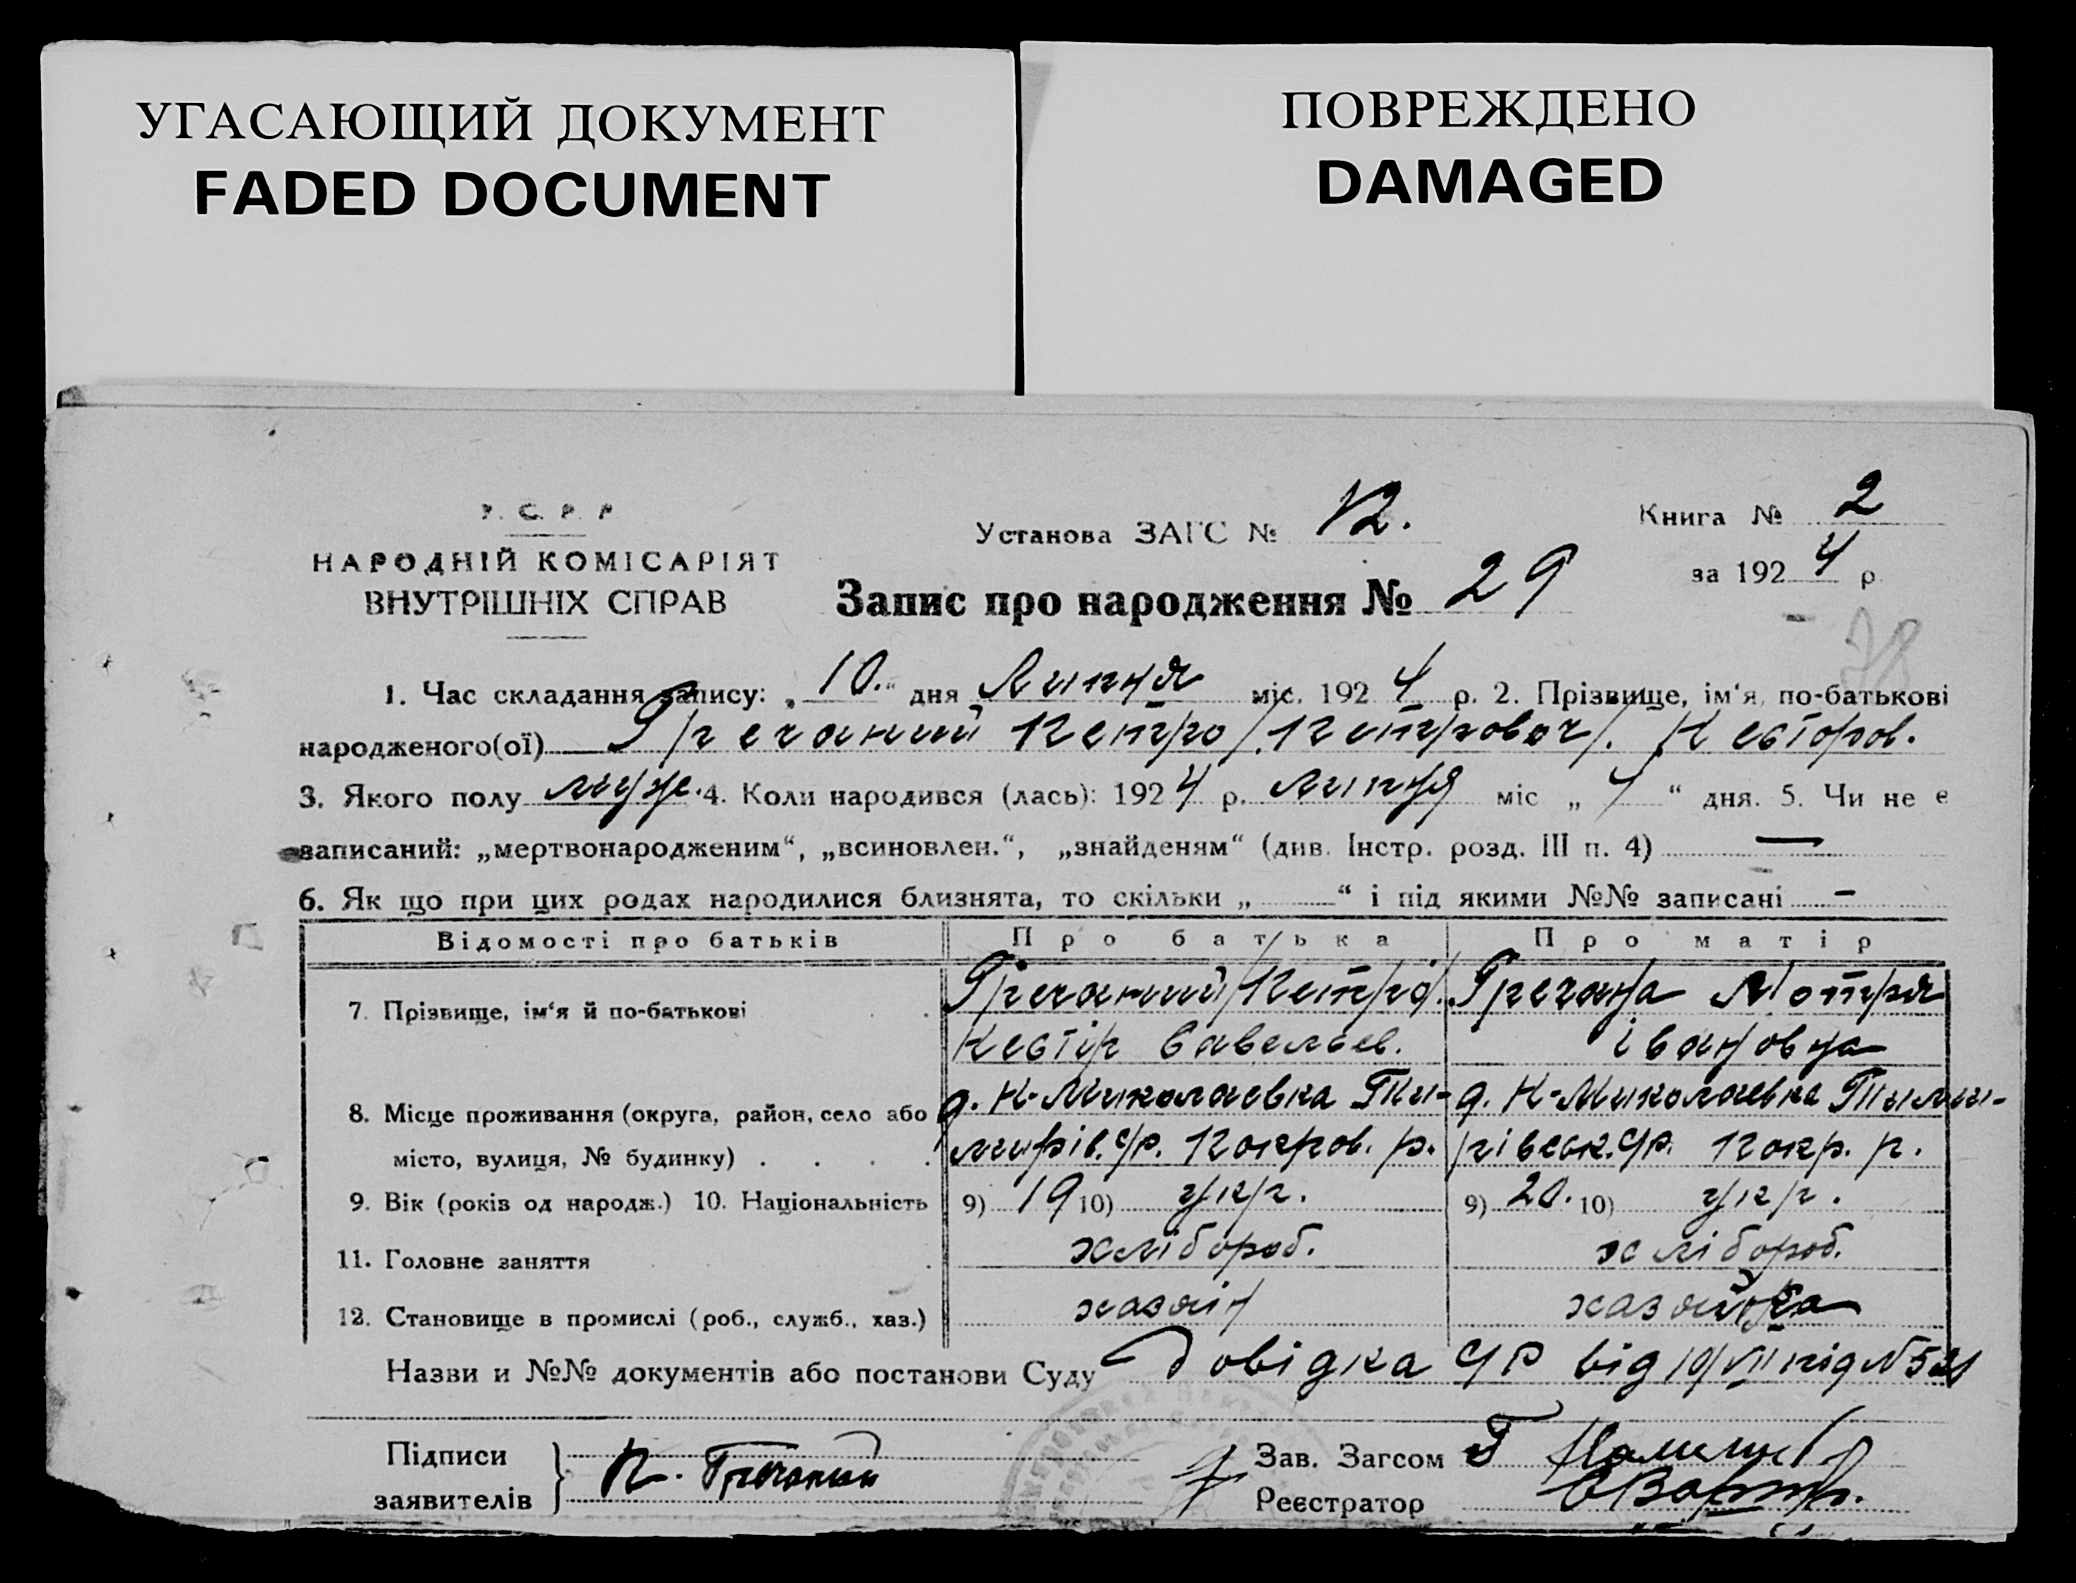 УГАСАЮЩИЙ ДОКУМЕНТ
FADED DOCUMENT
ПОВРЕЖДЕНО
DAMAGED
У. С. Р. Р.
НАРОДНІЙ КОМІСАРІЯТ
ВНУТРІШНІХ СПРАВ
Установа ЗАГС № 12.
Книга № 2
за 1924 р.
Запис про народження № 29
78
1. Час складання запису: „10.“ дня Липня міс. 1924 р. 2. Прізвище, ім‘я, по-батькові
народженого(ої) Гречаний Петро /Петрович/. Несторов.
3. Якого полу муж. 4. Коли народився (лась): 1924 р. липня міс „4“ дня. 5. Чи не є
записаний: „мертвонародженим“, „всиновлен.“, „знайденям“ (див. Інстр. розд. III п. 4) —
6. Як що при цих родах народилися близнята, то скільки „ “ і під якими №№ записані —
Відомості про батьків Про батька Про матір
7. Прізвище, ім‘я й по-батькові Гречаний /Петро/. Гречана Мотря
Нестір Савельєв. Івановна
8. Місце проживання (округа, район, село або д. Н-Миколаевка Ти- д. Н-Миколаевка Тыми-
місто, вулиця, № будинку) мирів. с/р. Покров. р. рівськ. с/р. Покр. р.
9. Вік (років од народж.) 10. Національність 9) 19 10) укр. 9) 20. 10) укр.
11. Головне заняття хлібороб. хлібороб.
12. Становище в промислі (роб., служб., хаз.) хазяін хазяйка
Назви и №№ документів або постанови Суду Довідка с/р від 10/VII під №521
Підписи
заявителів П. Гречаний
Зав. Загсом
Реєстратор